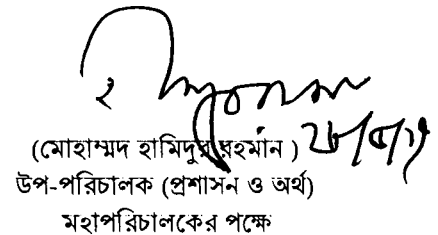 (মোহাম্মদ হামিদুর রহমান )
উপ-পরিচালক (প্রশাসন ও অর্থ)
মহাপরিচালকের পক্ষে